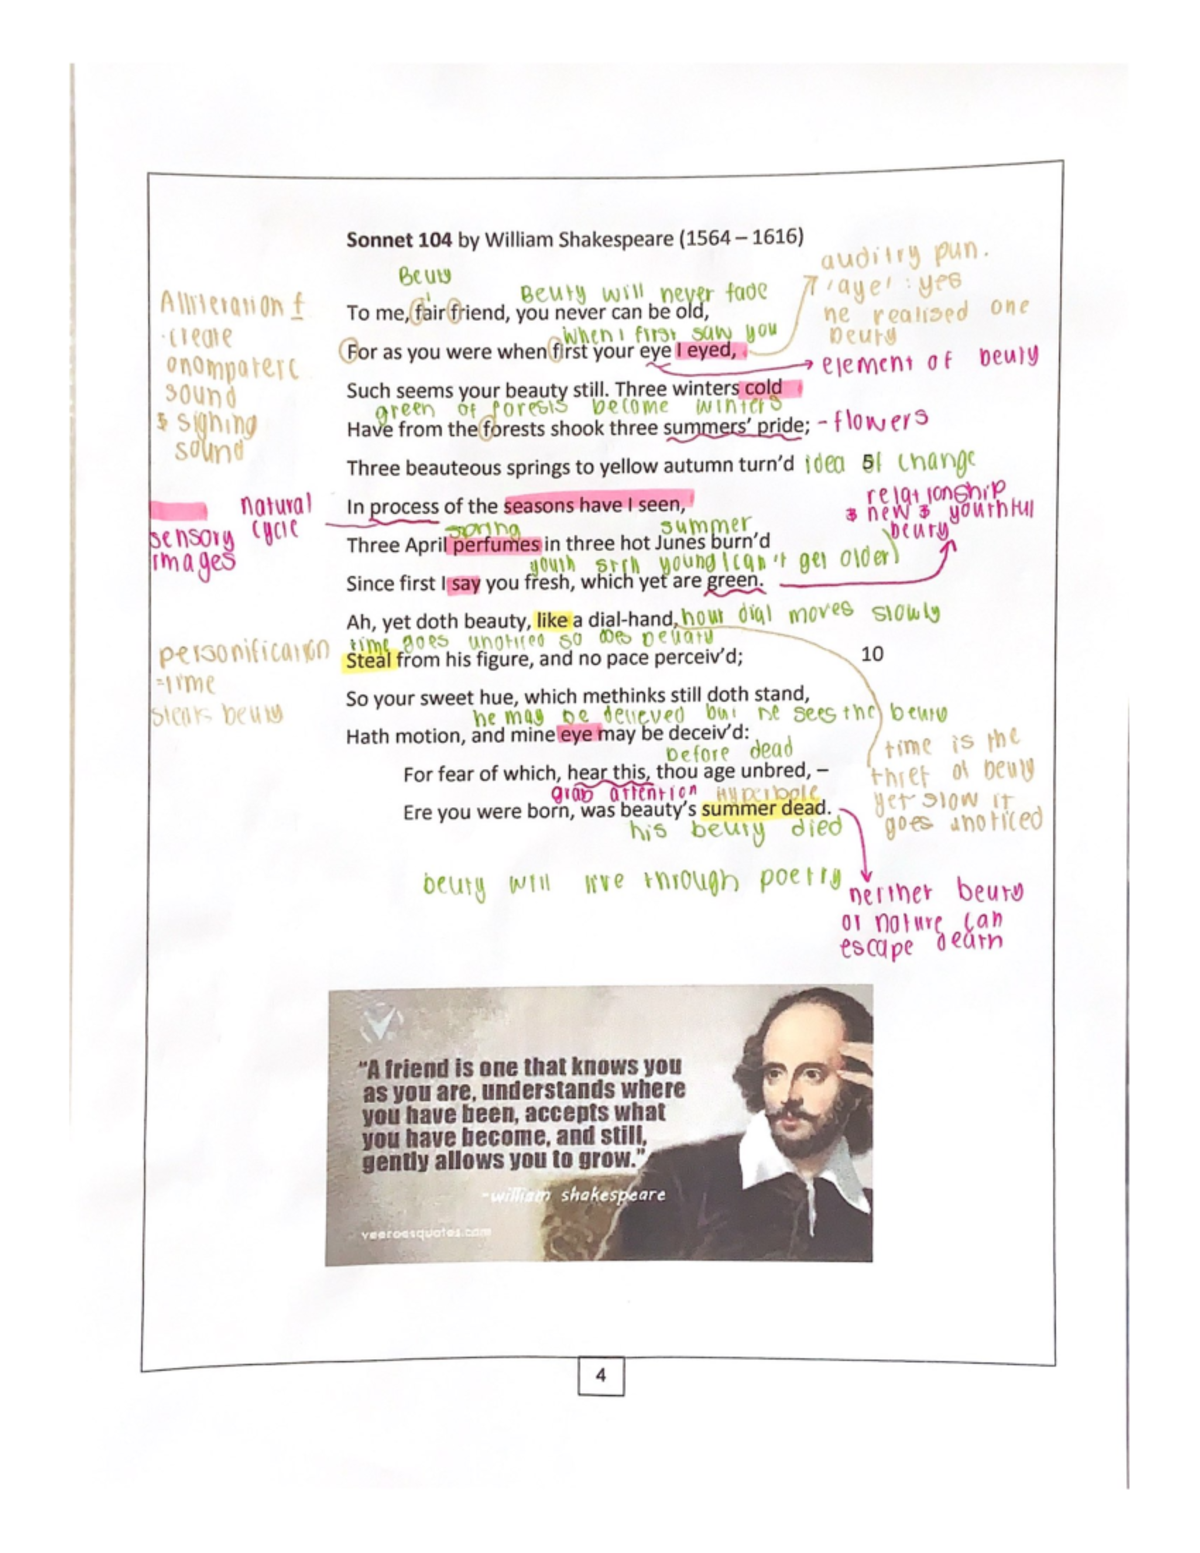 Sonnet 104 by William Shakespeare (1564 – 1616)
auditry pun.
'aye' : yes
he realised one
beuty
element of beuty
Alliteration f
- create
onompateic
sound
& signing
sound
Beuty
Beuty will never fade
To me, fair friend, you never can be old,
when I first saw you
For as you were when first your eye I eyed,
Such seems your beauty still. Three winters cold
green of forests become winters
Have from the forests shook three summers' pride; - flowers
Three beauteous springs to yellow autumn turn'd idea of change
5
natural
cycle
sensory
images
In process of the seasons have I seen,
relationship
& new & youthful
beuty
spring summer
Three April perfumes in three hot Junes burn'd
youth still young (can't get older)
Since first I say you fresh, which yet are green.
Ah, yet doth beauty, like a dial-hand, hour dial moves slowly
time goes unoticed so does beuaty
Steal from his figure, and no pace perceiv'd;
10
personification
=time
steals beuty
So your sweet hue, which methinks still doth stand,
he may be decieved but he sees the beuty
Hath motion, and mine eye may be deceiv'd:
before dead
For fear of which, hear this, thou age unbred, –
grab attention hyperbole
Ere you were born, was beauty's summer dead.
his beuty died
time is the
thief of beuty
yet slow it
goes unoticed
beuty will live through poetry
neither beuty
or nature can
escape death
"A friend is one that knows you
as you are, understands where
you have been, accepts what
you have become, and still,
gently allows you to grow."
-william shakespeare
veeroesquotes.com
4